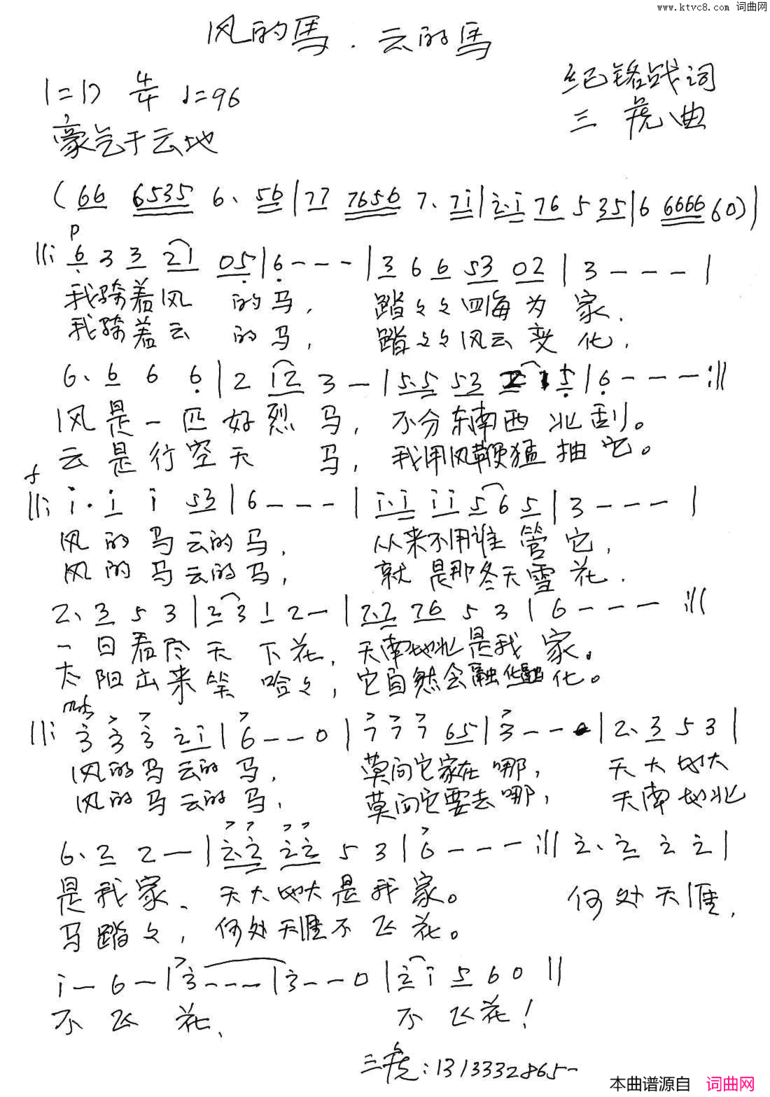 www.ktvc8.com 词曲网
风的馬．云的馬
1=D 4/4 ♩=96
纪铭战词
豪气于云地
三虎曲
(66 6535 6. 56|77 7656 7. 7i|2.i 76 5 35|6 6666 60)|
p
‖: 6 3 3 21 05|6 - - -|3 6 6 53 02|3 - - -|
我骑着风 的马， 踏々々四海为 家．
我骑着云 的马， 踏々々风云变 化，
6. 6 6 6|2 12 3 -|5.5 53 2 1 5|6 - - - :‖
风是一匹好烈 马，不分东南西 北刮。
云是行空天 马，我用风鞭猛 抽它。
f
‖: i. i i 53|6 - - -|i.i ii 5 6 5|3 - - -|
风的马云的马， 从来不用谁管它，
风的马云的马， 就是那冬天雪花．
2. 3 5 3|2 3 1 2 -|2.2 76 5 3|6 - - - :‖
一日看尽天 下花，天南地北是我 家。
太阳出来笑 哈々，它自然会融化 化。
‖: 3 3 3 2i|6 - - 0|7 7 7 65|3 - - -|2. 3 5 3|
风的马云的马， 莫问它家在 哪， 天大地大
风的马云的马， 莫问它要去哪， 天南地北
6. 2 2 -|2.2 22 5 3|6 - - - :‖ 2. 2 2 2|
是我家、天大地大是我家。 何处天涯，
马踏々，何处天涯不飞花。
i - 6 -|3 - - -|3 - - 0|2 i 5 6 0‖
不飞花、 不飞花！
三虎:1313332865
本曲谱源自 词曲网